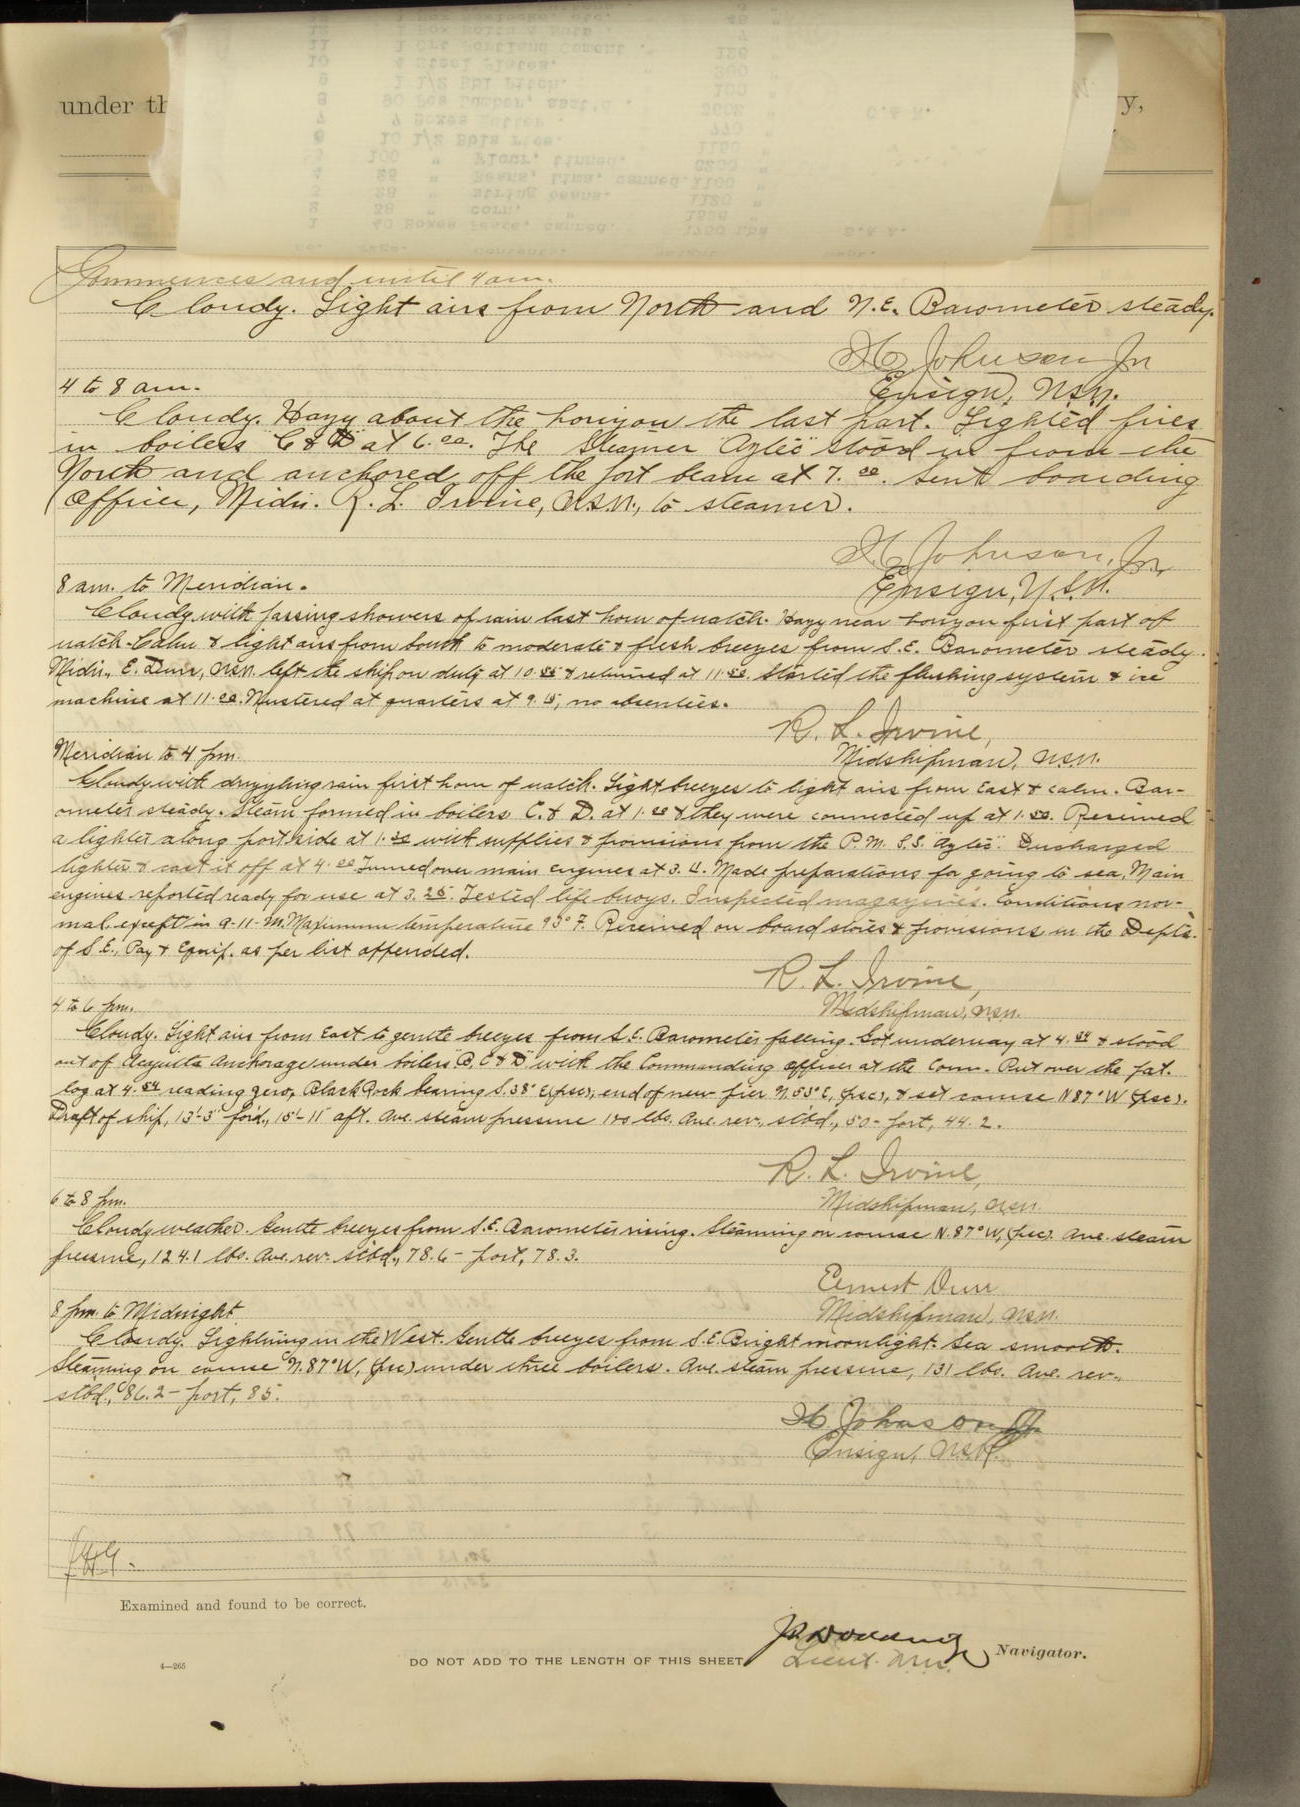 under th
y,
Commences and until 4 am.
Cloudy. Light airs from North and N.E. Barometer steady.
H Johnson Jr
Ensign, USN.
4 to 8 am.
Cloudy. Hazy about the horizon the last part. Lighted fires
in boilers C & D at 6.00. The Steamer "Aztec" stood in from the
North and anchored off the port beam at 7.00. Sent boarding
officer, Midn. R. L. Irvine, U.S.N., to steamer.
H Johnson, Jr.
Ensign, U.S.N.
8 am. to Meridian.
Cloudy with passing showers of rain last hour of watch. Hazy near horizon first part of
watch. Calm & light airs from South to moderate & fresh breezes from S.E. Barometer steady.
Midn., E. Durr, USN. left the ship on duty at 10. & returned at 11. Started the flushing system & ice
machine at 11.00. Mustered at quarters at 9.15, no absentees.
R. L. Irvine,
Midshipman, USN.
Meridian to 4 pm.
Cloudy with drizzling rain first hour of watch. Light breezes to light airs from East & calm. Bar-
ometer steady. Steam formed in boilers C. & D. at 1.00 & they were connected up at 1.50. Received
a lighter along port side at 1.30 with supplies & provisions from the P.M. S.S. "Aztec". Discharged
lighter & cast it off at 4.00 Turned over main engines at 3. Made preparations for going to sea. Main
engines reported ready for use at 3.25. Tested life buoys. Inspected magazines. Conditions nor-
mal except in 9-11-M. Maximum temperature 93° F. Received on board stores & provisions in the Depts.
of S.E., Pay & Equip. as per list appended.
R. L. Irvine,
Midshipman, USN.
4 to 6 pm.
Cloudy. Light airs from East to gentle breezes from S.E. Barometer falling. Got underway at 4.34 & stood
out of Acajutla Anchorage under boilers "B, C & D" with the Commanding officer at the Conn. Put over the pat.
log at 4.54 reading zero, Black Rock bearing S.38° E(psc), end of new pier N.55° E, (psc), & set course N 87° W (psc).
Draft of ship, 13'-3" for'd., 15'-11" aft. Ave. steam pressure 100 lbs. Ave. rev., stbd., 50 - port, 44.2.
R. L. Irvine,
Midshipman, USN.
6 to 8 pm.
Cloudy weather. Gentle breezes from S.E. Barometer rising. Steaming on course N.87° W, (psc). Ave. steam
pressure, 124.1 lbs. Ave. rev. stbd., 78.6 - port, 78.3.
Ernest Durr
Midshipman, USN.
8 pm. to Midnight
Cloudy. Lightning in the West. Gentle breezes from S.E. Bright moonlight. Sea smooth.
Steaming on course N.87° W, (psc) under three boilers. Ave. steam pressure, 131 lbs. Ave. rev.,
stbd., 86.2 - port, 85.
H. Johnson Jr
Ensign, USN.
Examined and found to be correct.
Navigator.
4—265
DO NOT ADD TO THE LENGTH OF THIS SHEET
Lieut. USN.